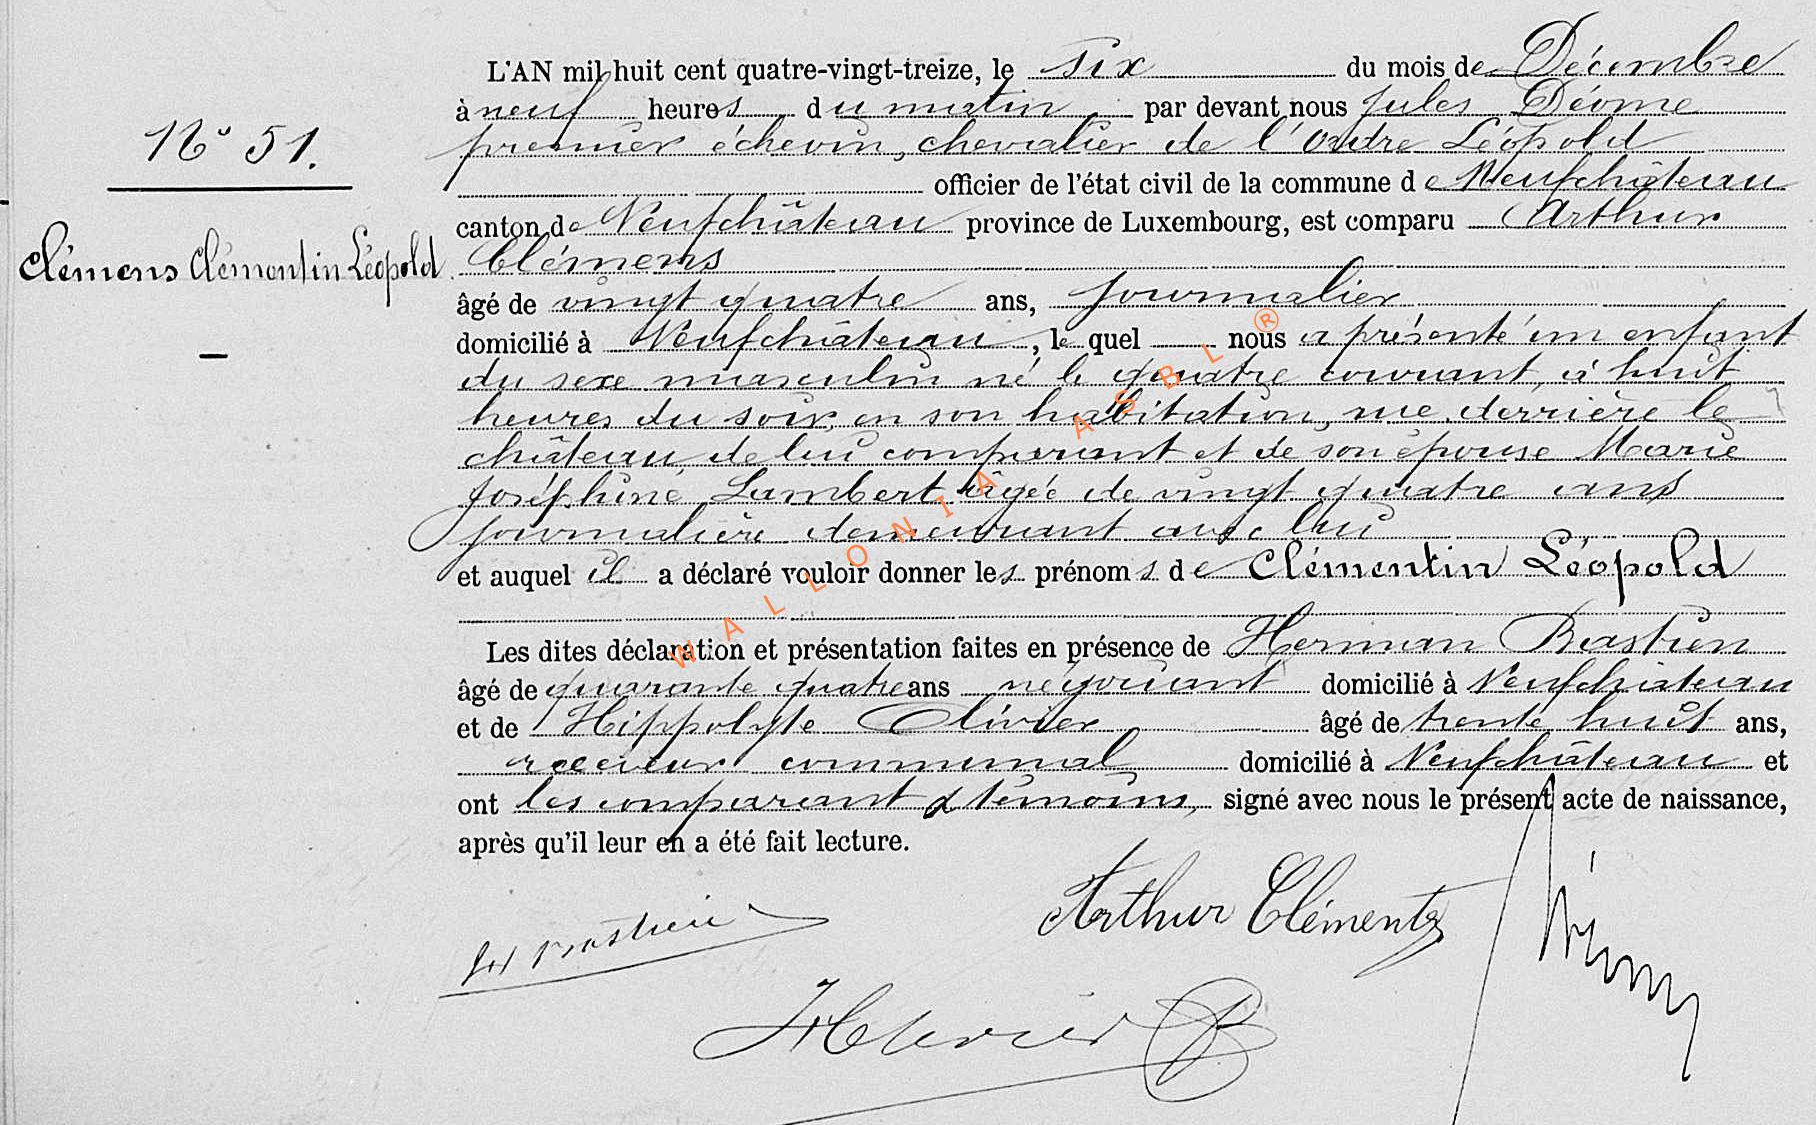 N° 51.
Clémens Clémentin Léopold
L'AN mil huit cent quatre-vingt-treize, le six du mois de Décembre
à neuf heures du matin par devant nous Jules Déome
premier échevin, chevalier de l'Ordre Léopold
officier de l'état civil de la commune de Neufchâteau
canton de Neufchâteau province de Luxembourg, est comparu Arthur
Clémens
âgé de vingt quatre ans, journalier
domicilié à Neufchâteau, le quel nous a présenté un enfant
du sexe masculin né le quatre courant, à huit
heures du soir, en son habitation, rue derrière le
château, de lui comparant et de son épouse Marie
Joséphine Lambert âgée de vingt quatre ans
journalière demeurant avec lui
et auquel il a déclaré vouloir donner les prénoms de Clémentin Léopold
Les dites déclaration et présentation faites en présence de Herman Bastien
âgé de quarante quatre ans négociant domicilié à Neufchâteau
et de Hippolyte Olivier âgé de trente huit ans,
receveur communal domicilié à Neufchâteau et
ont les comparant & témoins, signé avec nous le présent acte de naissance,
après qu'il leur en a été fait lecture.
Arthur Clémentz
H Bastien
WALLONIA ASBL ®